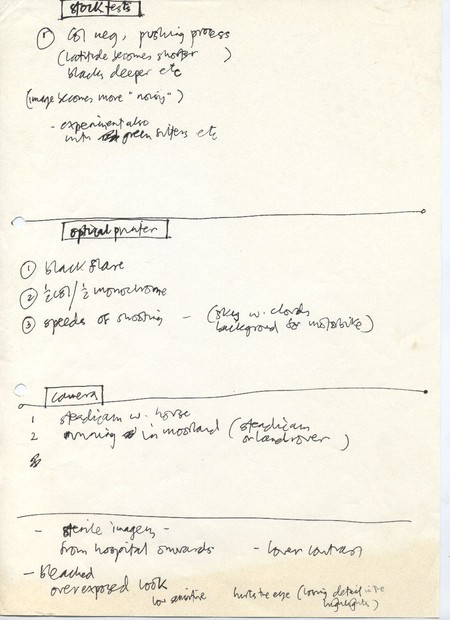 stock tests
1 Col neg, pushing process
(latitude becomes shorter )
blacks deeper etc
(image becomes more "noisy")
- experiment also
with green filters etc
optical printer
1 black flare
2 ½ col/½ monochrome
3 speeds of shooting - (sky w. clouds
background for motorbike)
camera
1 steadicam w. horse
2 running in moorland (steadicam
on landrover )
- sterile imagery -
from hospital onwards - lower contrast
- bleached
overexposed look
low sensitive hurts the eye (losing detail in the
highlights)